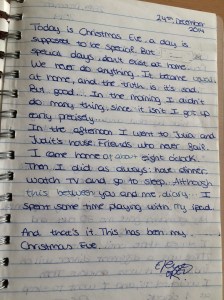 24th December
2014
Today is Christmas Eve, a day is
supposed to be special. But
special days don't exist at home...
We never do anything. It become usual
at home, and the truth is it's sad.
But good... In the morning I didn't
do many thing, since it isn't I got up
early precisely...
In the afternoon I went to Julia and
Judit's house. Friends who never fail.
I came home at about eight o'clock.
Then I did as always: have dinner,
watch TV and go to sleep. Although
this between you and me, diary. I
spent some time playing with my ipad.
And that's it. This has been my
Christmas Eve.